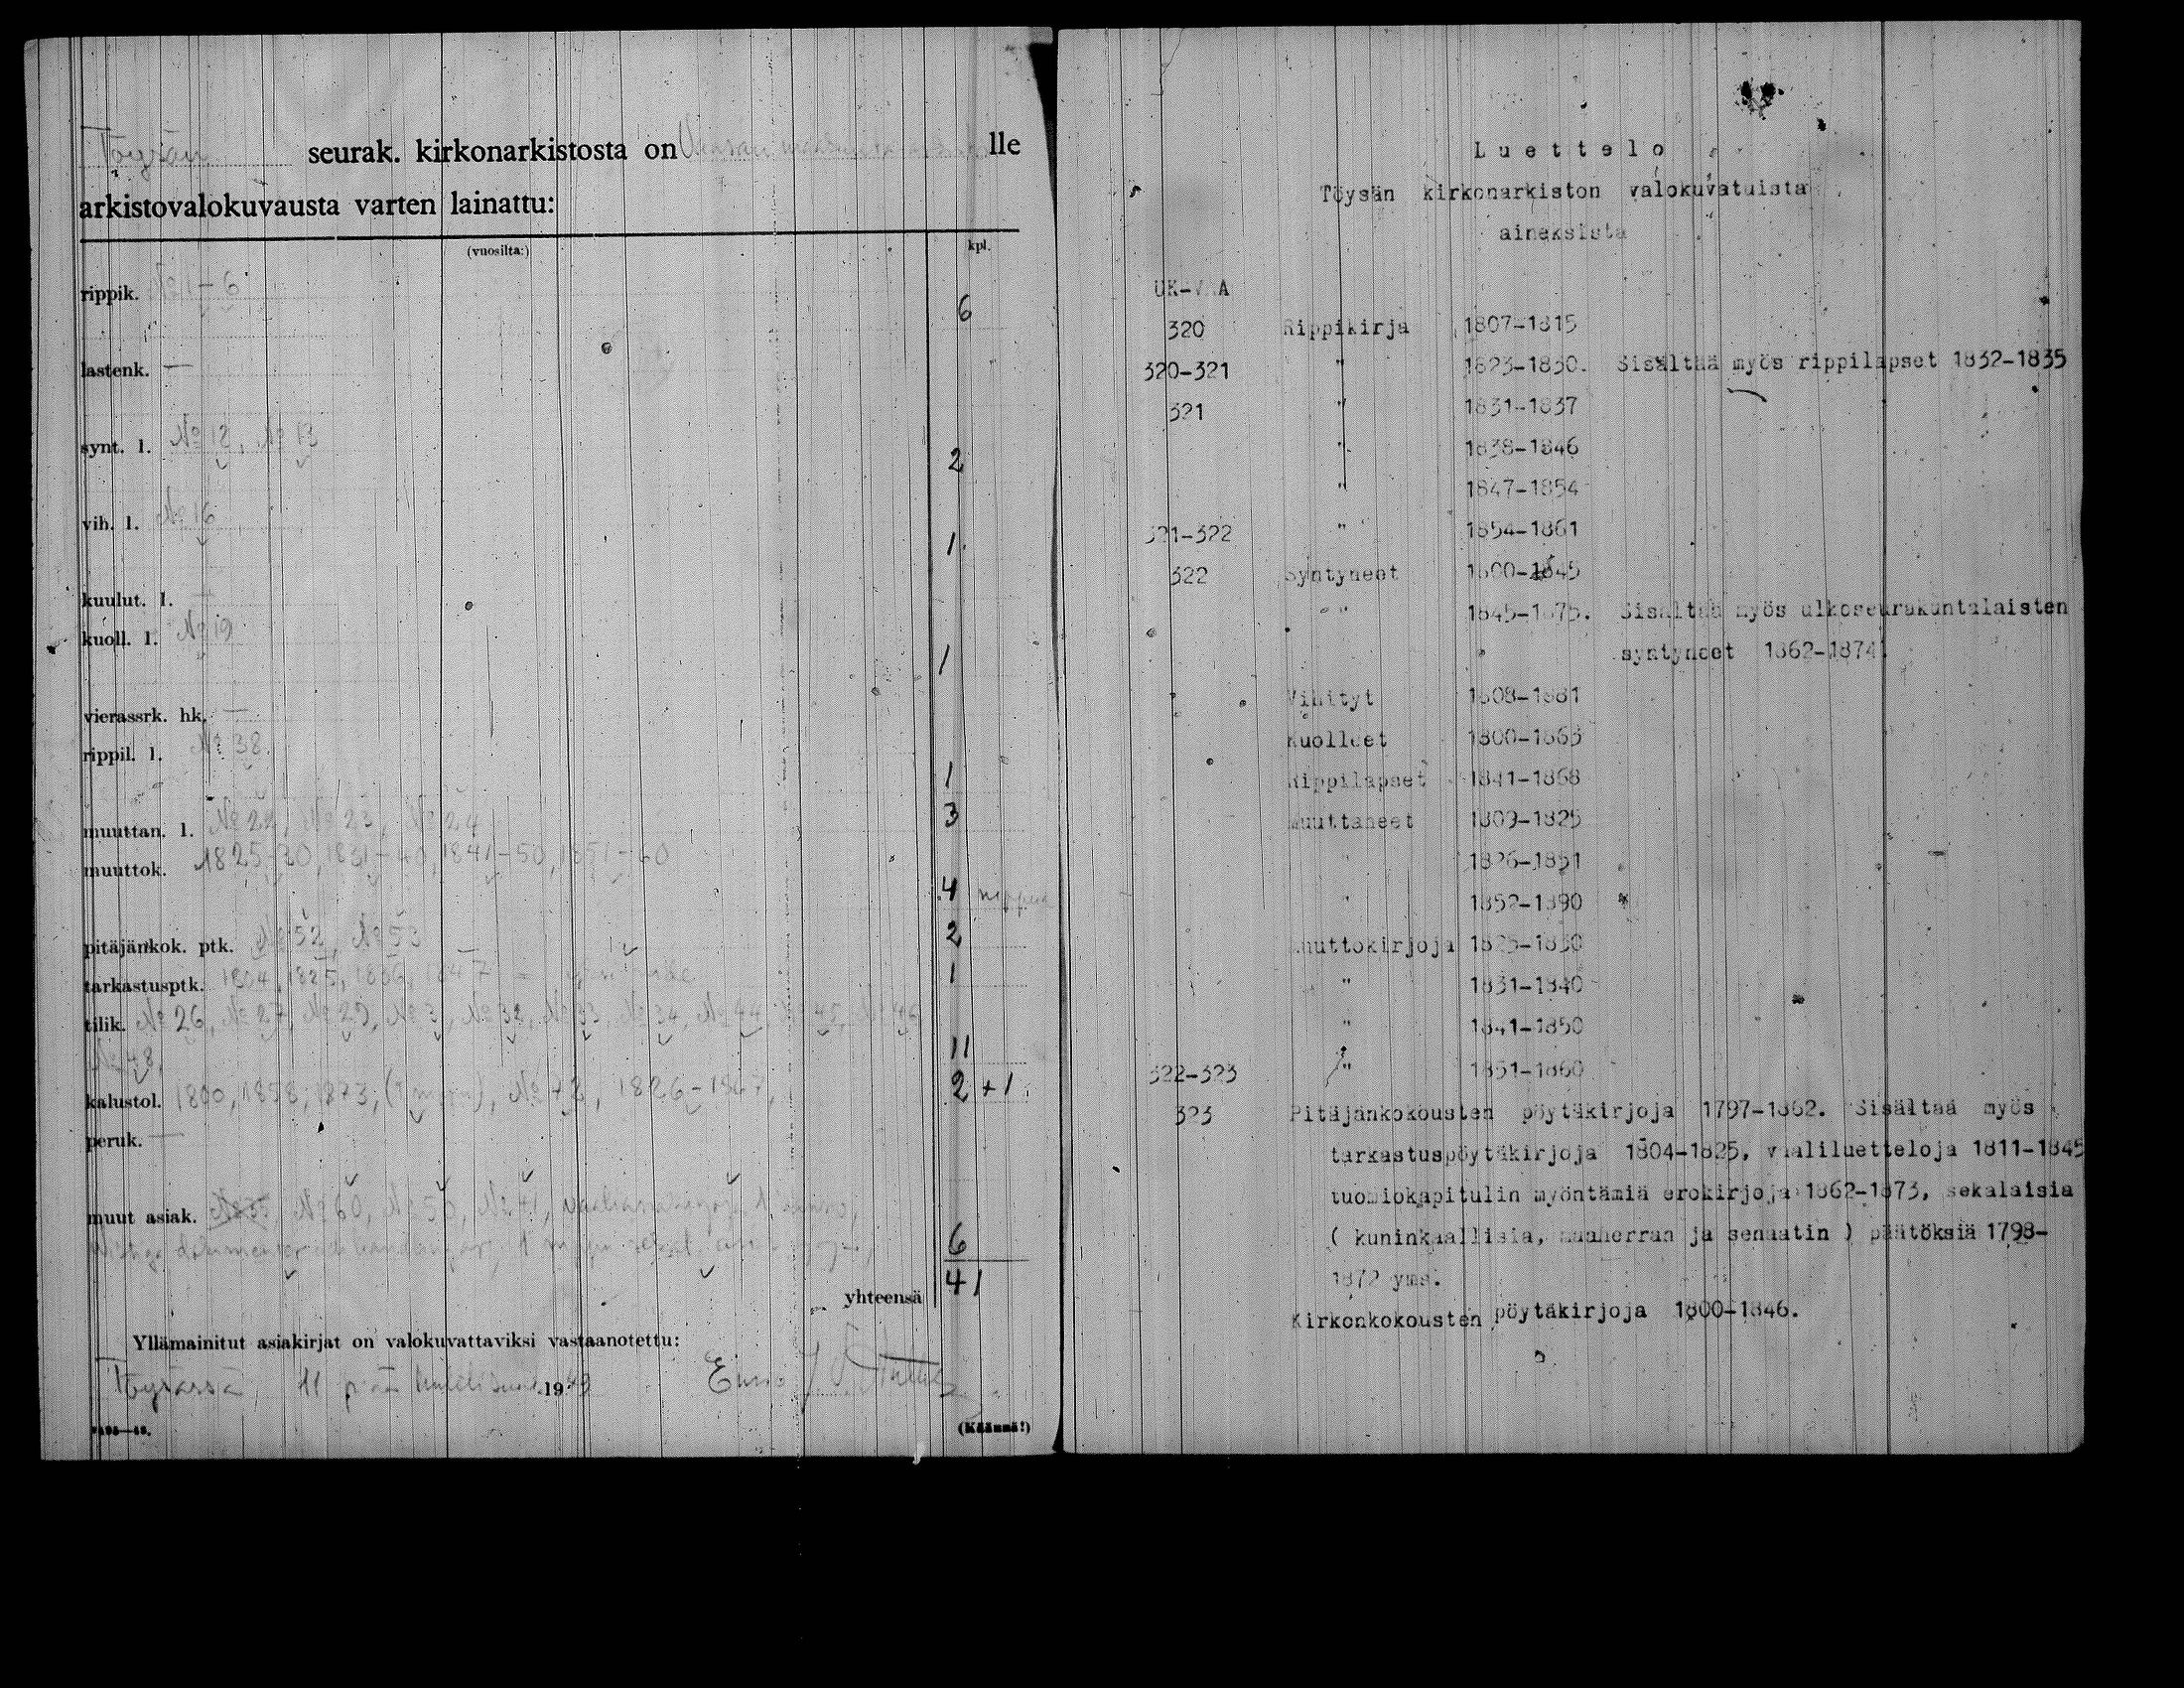 Töysän seurak. kirkonarkistosta on lle
arkistovalokuvausta varten lainattu:
(vuosilta:) kpl.
rippik. № 1-6 6
lastenk. —
synt. l. № 12, № 13 2
vih. l. № 16 1
kuulut. l. —
kuoll. l. № 19 1
vierassrk. hk. —
rippil. l. № 38. 1
muuttan. l. № 22, № 23, № 24 3
muuttok. 1825-30, 1831-40, 1841-50, 1851-60 4 nippua
pitäjänkok. ptk. № 52, № 53 2
tarkastusptk. 1804, 1825, 1836, 1847 1
tilik. № 26, № 27, № 29, № 3, № 32, № 33, № 34, № 44, № 45, № 46
№ 48, 11
kalustol. 1800, 1858, 1873, № 42, 1826-1847, 2 +1
peruk. —
muut asiak. № 60, № 50, № 41,
6
yhteensä 41
Yllämainitut asiakirjat on valokuvattaviksi vastaanotettu:
Töysässä, 11 p:nä huhtikuuta 1949
(Käännä!)
Luettelo
Töysän kirkonarkiston valokuvatuista
aineksista
UK-VAA
320 Rippikirja 1807-1815
320-321 " 1823-1830. Sisältää myös rippilapset 1832-1835
321 " 1831-1837
" 1838-1846
" 1847-1854
321-322 " 1854-1861
322 Syntyneet 1800-1845
" 1845-1875. Sisältää myös ulkoseurakuntalaisten
syntyneet 1862-1874.
Vihityt 1808-1881
Kuolleet 1800-1863
Rippilapset 1841-1868
Muuttaneet 1809-1825
" 1826-1851
" 1852-1890
Muuttokirjoja 1825-1830
" 1831-1840
" 1841-1850
322-323 " 1851-1860
323 Pitäjänkokousten pöytäkirjoja 1797-1862. Sisältää myös
tarkastuspöytäkirjoja 1804-1825, vaaliluetteloja 1811-1845
tuomiokapitulin myöntämiä erokirjoja 1862-1873, sekalaisia
( kuninkaallisia, maaherran ja senaatin ) päätöksiä 1798-
1872 yms.
Kirkonkokousten pöytäkirjoja 1800-1846.